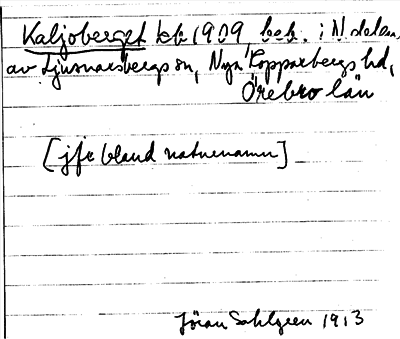 Kaljoberget kb 1909 beb. i N. delen
av Ljusnarsbergs sn, Nya Kopparbergs hd,
Örebro län
[jfr bland naturnamn]
Jöran Sahlgren 1913